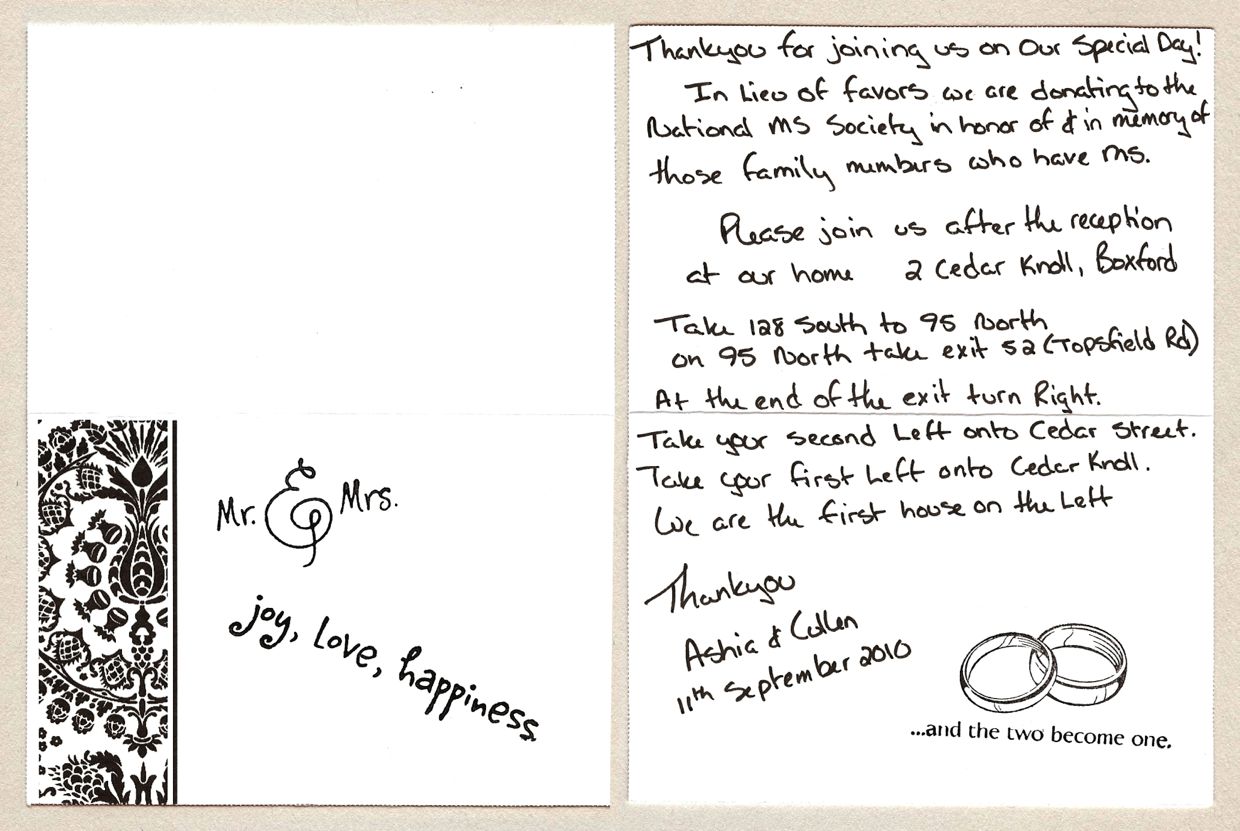 Mr. & Mrs.
joy, love, happiness.
Thankyou for joining us on Our Special Day!
In Lieu of favors we are donating to the
National MS Society in honor of & in memory of
those family members who have MS.
Please join us after the reception
at our home 2 Cedar Knoll, Boxford
Take 128 South to 95 North
on 95 North take exit 52 (Topsfield Rd)
At the end of the exit turn Right.
Take your second Left onto Cedar Street.
Take your first Left onto Cedar Knoll.
We are the first house on the Left
Thankyou
Ashia & Cullen
11th September 2010
...and the two become one.